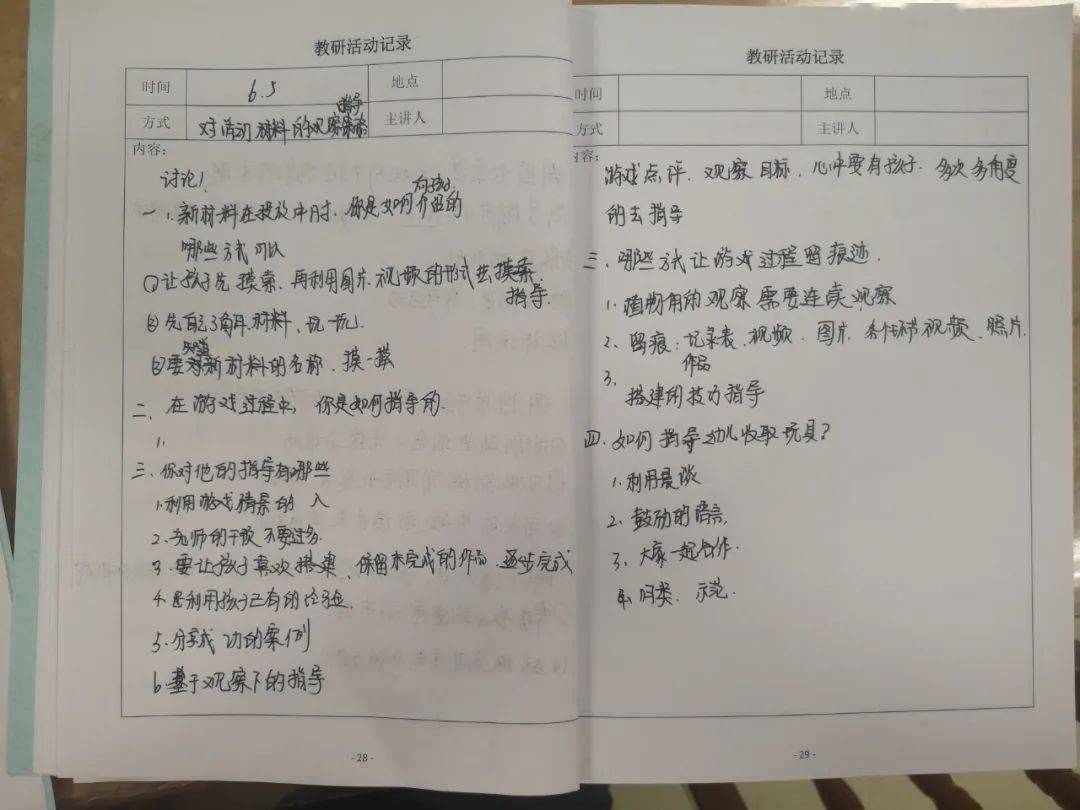 教研活动记录
时间 6.5 地点
方式 对活动材料的观察指导 主讲人
内容:
讨论!
一 1. 新材料在投放中时,你是如何介绍的
哪些方式可以
①让孩子先摸索,再利用图片、视频的形式去摸索.指导.
②先自己了解材料,玩一玩.
③要知道新材料的名称、摸一摸
二、在游戏过程中,你是如何指导的.
1.
三、你对他的指导有哪些
1.利用游戏情景的 入
2.老师的干预不要过多.
3.要让孩子喜欢搭建、保留未完成的作品.逐步完成
4.利用孩子已有的经验.
5.分享成功的案例
6.基于观察下的指导
- 28 -
教研活动记录
时间 地点
方式 主讲人
内容:
游戏点评.观察目标.心中要有孩子.多次多角度
的去指导
三.哪些方式让游戏过程留痕迹.
1.植物角的观察需要连续观察
2、留痕:记录表、视频、图片、各个环节视频、照片.
作品
3.搭建的技巧指导
四.如何指导幼儿收取玩具?
1.利用晨谈
2.鼓励的语言,
3、大家一起合作.
4.归类、示范.
- 29 -